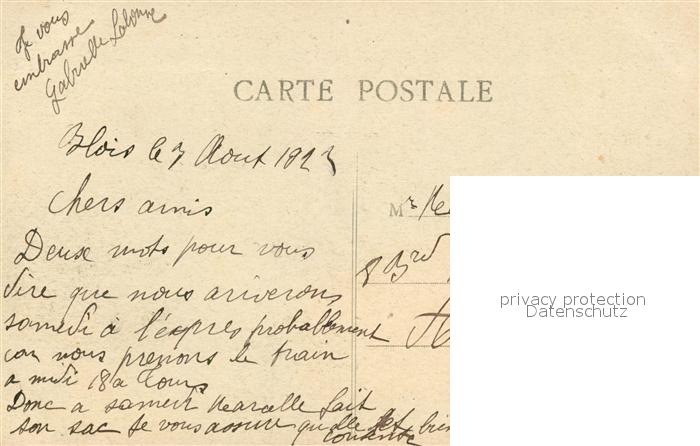 Je vous
embrasse
Gabrielle
CARTE POSTALE
Blois le 7 Aout 1923
Chers amis
Deux mots pour vous
dire que nous ariverons
samedi à l'expres probablement
car nous prenons le train
a midi 18 a Tours
Donc a samedi Marcelle fait
son sac je vous assure qu'elle est bien
contente
Mr
8 Brd
privacy protection
Datenschutz